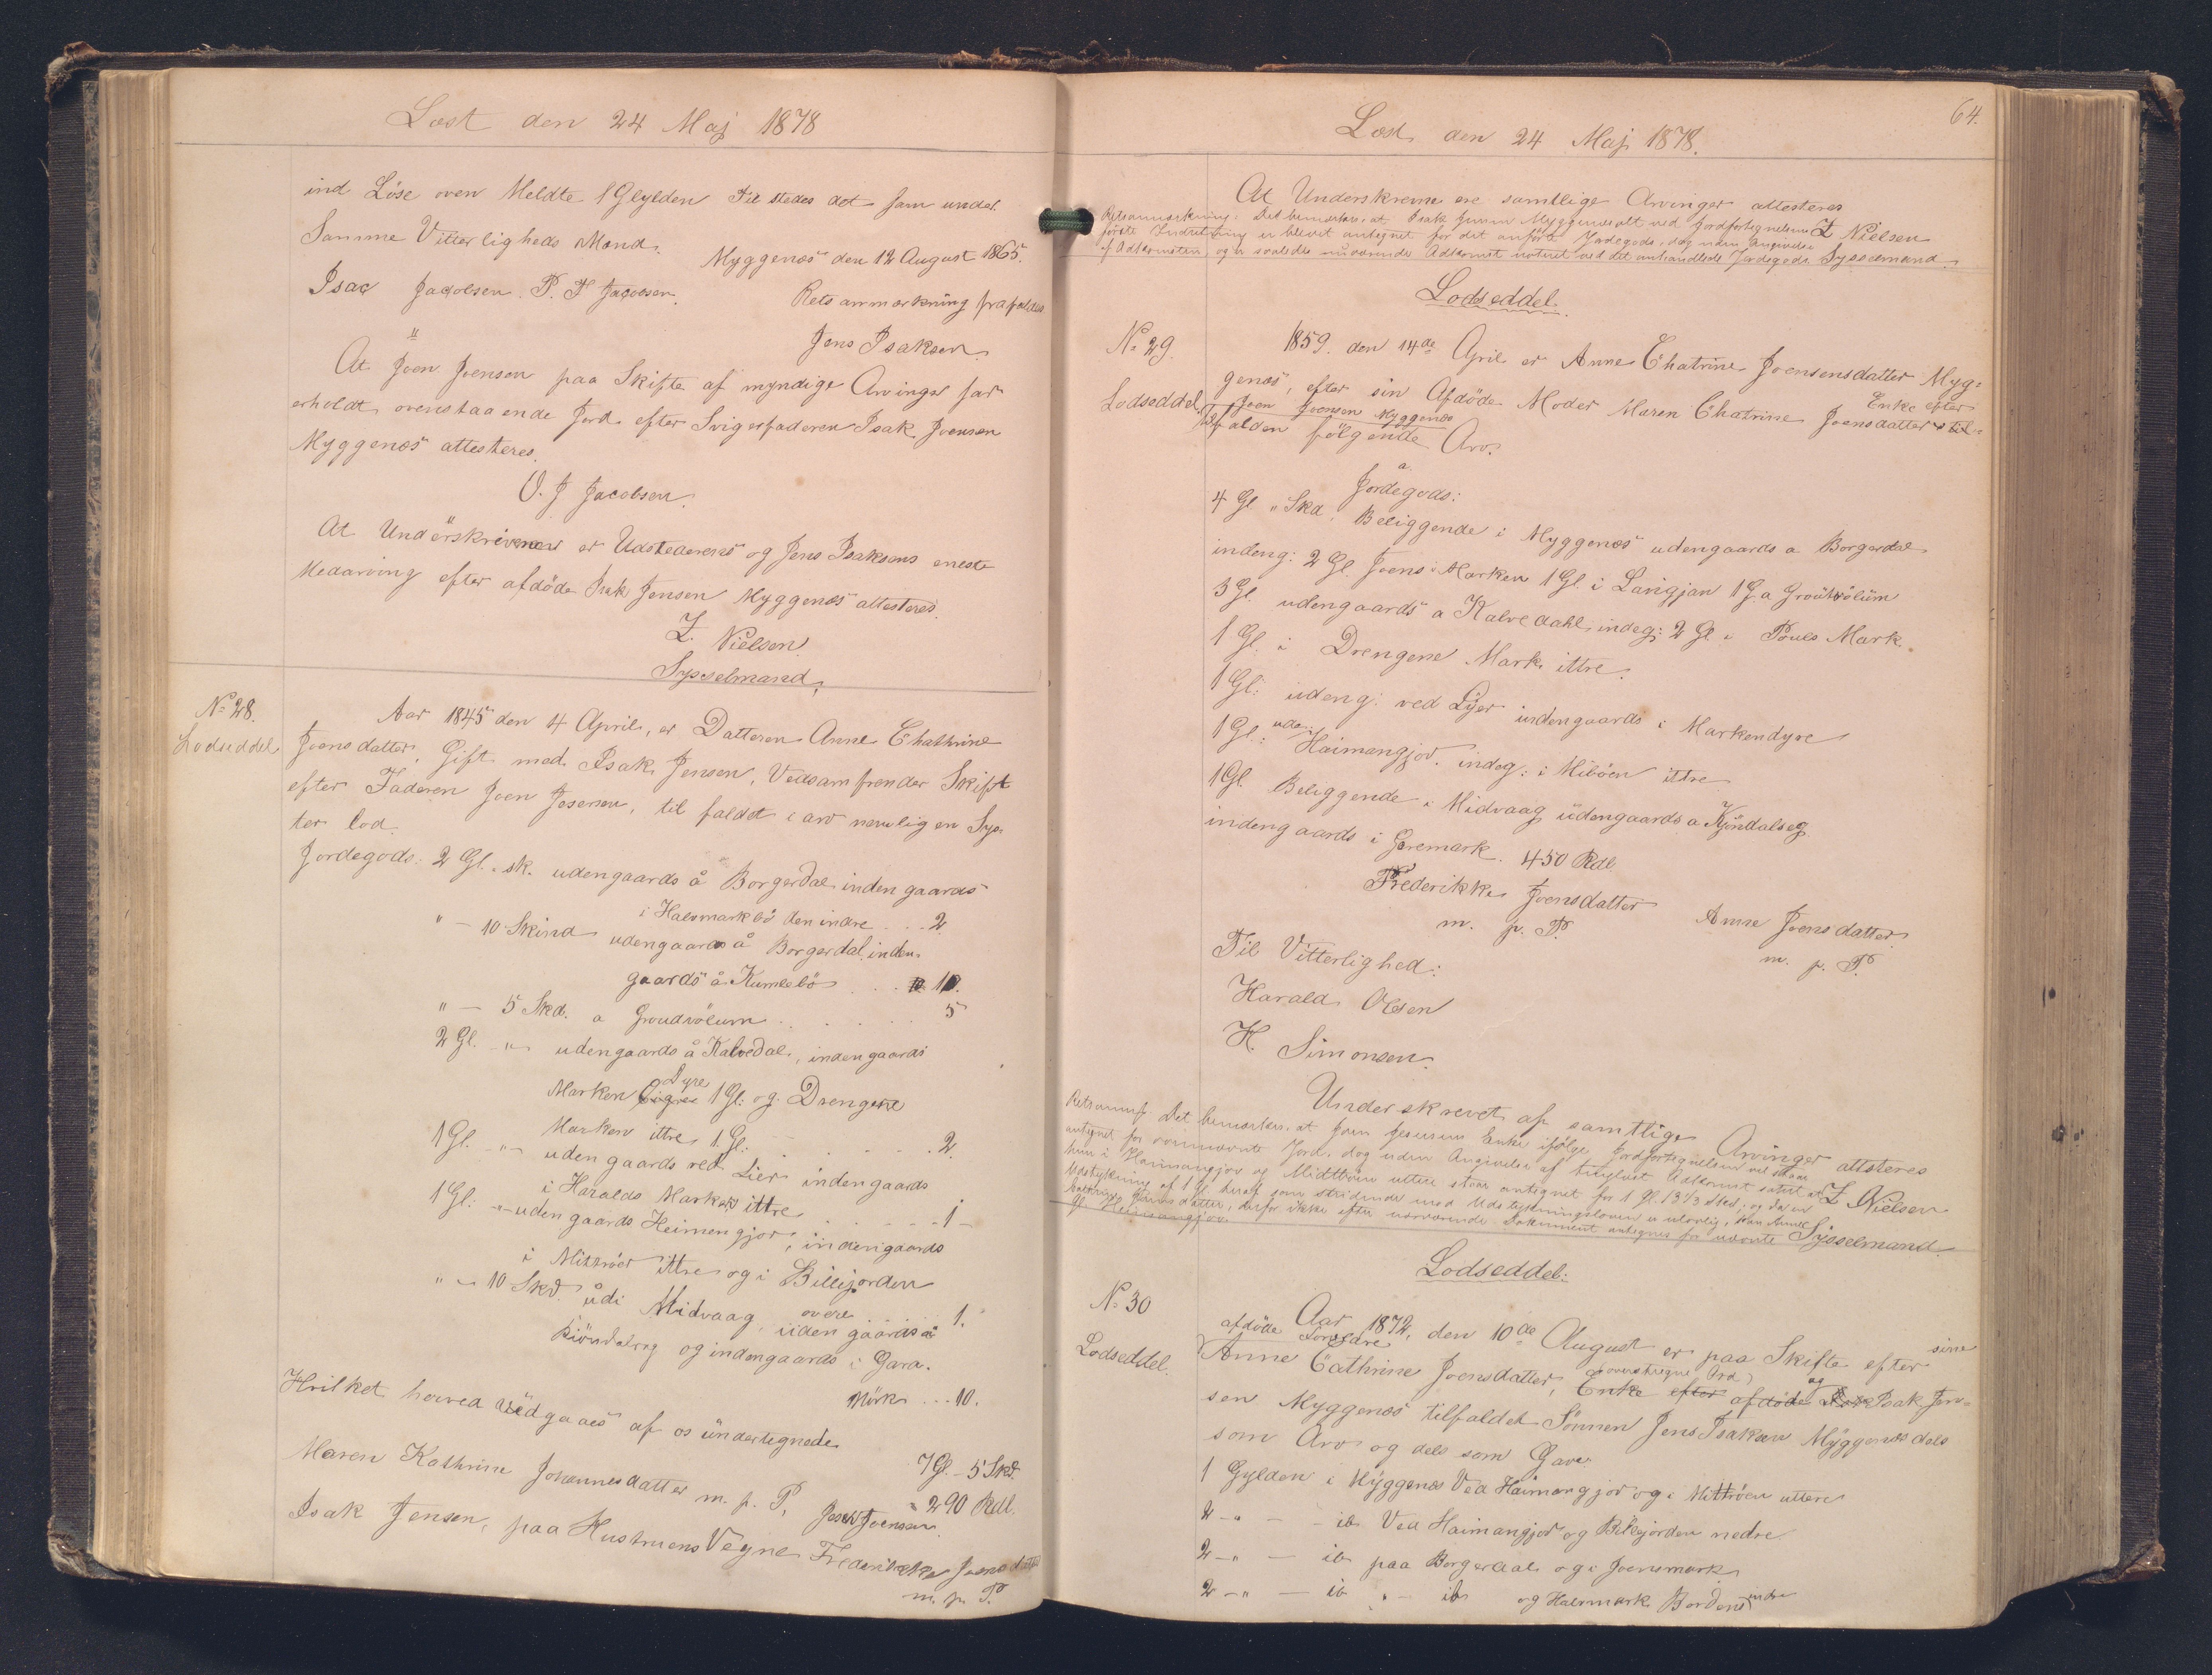 Læst den 24 Maj 1878
ind Löse oven Meldte 1 Glylden Til stedes det sam under
Samme Vitterligheds Mænd.
Myggenæs den 12 August 1865.
Isac Jacobsen. P. F Jacobsen.
Rets anmærkning frafaldes
Jens Isaksen.
At Joen Joensen paa Skifte af myndige Arvinger har
erholdt ovenstaaende Jord efter Svigerfaderen Isak Joensen
Myggenæs attesteres.
O. J Jacobsen.
At Underskriveren er Udstederens og Jens Isaksens eneste
Medarving efter afdöde Isak Jensen Myggenæs attesteres.
Z. Nielsen.
Sysselmand.
No 28.
Lodseddel
Aar 1845 den 4 April, er Datteren Anne Chathrine
Joensdatter, Gift med Isak Jensen, Vedsamfrender Skift
efter Faderen Joen Jesersen, til faldet i arv nemlig en Sys-
ter lod.
Jordegods: 2 Gl. " sk. udengaards å Borgerdal inden gaards
i Halvmarkbö den indre . . . 2
" — 10 Skind udengaards å Borgerdal, inden-
gaards å Kumlebö . . . 10.
" — 5 Skd. a Groudvölum . . . . . 5
2 Gl. — " — udengaards å Kalvedal, indengaards
Marken Dyre 1 Gl: og Drengene
Marken ittre 1 Gl: . . . . . . 2.
1 Gl. — " — uden gaards ved Lier indengaards
i Haralds Marken ittre . . . . . . 1 —
1 Gl: — " — uden gaards Heimengjov, indengaards
i Mittröer ittre og i Billijorden
overe . . . . . 1.
" — 10 Skd. udi Midvaag, uden gaards å
Kiöndalseg og indengaards i Gara-
Mörk . . . 10.
Hvilket herved vedgaaes af os undertegnede
7 Gl. — 5 Skd.
= 290 Rdl.
Maren Kathrine Johannesdatter m. p. P, Jeser Joensen
Isak Jensen, paa Hustruens Vegne Frederikke Joensdatter
m. p. P.
64.
Læst den 24 Maj 1878.
At Underskrevne ere samtlige Arvinger attesteres
Retsanmærkning: Det bemærkes, at Isak Jensen Myggenæs alt ved Jordfortegnelsens
Z Nielsen
første Indretning er blevet antegnet for det anførte Jordegods, dog uden Angivelse
af Adkomsten, og er saaledes nuværende Adkomst noteret ved det omhandlede Jordegods.
Sysselmand.
Lodseddel.
No 29.
Lodseddel.
1859. den 14de April er Anne Chatrine Joensensdatter Myg-
genæs, efter sin Afdöde Moder Maren Chatrine Joensdatter Enke efter
Joen Joensen Myggenæs til-
falden fölgende Arv.
a
Jordegods:
4 Gl " Skd. Beliggende i Myggenæs udengaards a Borgerdal
indeng: 2 Gl. Joens Marken 1 Gl. i Langjan 1 G. a Groutvölum
3 Gl. udengaards a Kalvedahl, indeg: 2 Gl i Pouls Mark.
1 Gl: i Drengene Mark ittre.
1 Gl: udeng: ved Lyer indengaards i Markendyre
1 Gl: uden: Haimangjov. indeg: i Miböen ittre
1 Gl. Beliggende i Midvaag udengaards a Kjöndalseg
indengaards i Geremark. 450 Rdl.
Frederikke Joensdatter
m. p. P.
Anne Joensdatter.
m. p. P.
Til Vitterlighed:
Harald Olsen
H. Simonsen.
Underskrevet af samtlige Arvinger attsteres
Z Nielsen
Sysselmand.
Retsanm. Det bemærkes, at Joen Jesersens Enke ifölge Jordfortegnelsen vel staar
antegnet for ovennævnte Jord, dog uden Angivelse af tinglyst Adkomst samt at
hun i Haimangjov og Midttröen uttere staar antegnet for 1 Gl. 13 1/3 Skd; og da en
Udstykning af 1 Gl. heraf som stridende mod Udstykningsloven er ulovlig, kan Anne
Cathrine Joensdatter, derfor ikke efter nærværende Dokument antegnes for nævnte
Gl. Heimangjov
Lodseddel:
No 30
Lodseddel.
Aar 1872, den 10de August er paa Skifte efter sine
afdöde Forældre
Anne Cathrine Joensdatter, Enke efter afdöde og Isak Jen-
(overstregne Ord)
sen Myggenæs tilfaldet Sönnen Jens Isaksen Myggenæs dels
som Arv og dels som Gave.
1 Gylden i Myggenæs Ved Haimangjov og i Mittröen uttere
2 — " — — ib Ved Haimangjov og Billijorden nedre
2 — " — ib paa Borgerdal og i Joensmark
2 — " — ib " — ib og Halvmark Bordene indre